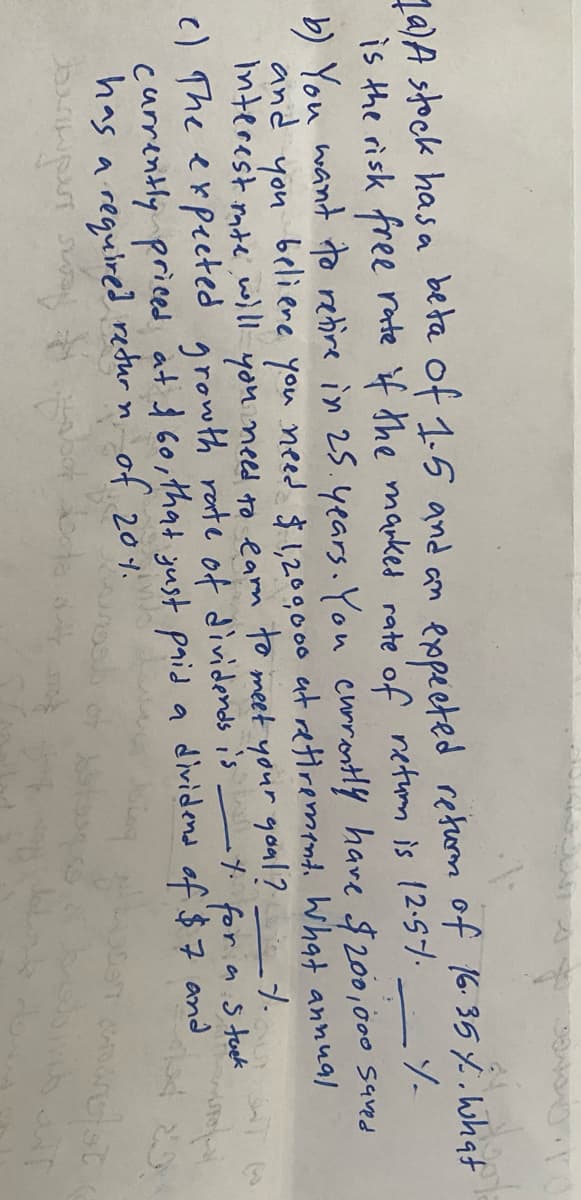 1a) A stock has a beta of 1.5 and an expected return of 16.35%. What
is the risk free rate if the market rate of return is 12.5%. ___%.
b) You want to retire in 25 years. You currently have $200,000 saved
and you believe you need $1,200,000 at retirement. What annual
interest rate will you need to earn to meet your goal? ___%.
c) The expected growth rate of dividends is ___%. for a stock
currently priced at $60, that just paid a dividend of $7 and
has a required return of 20%.